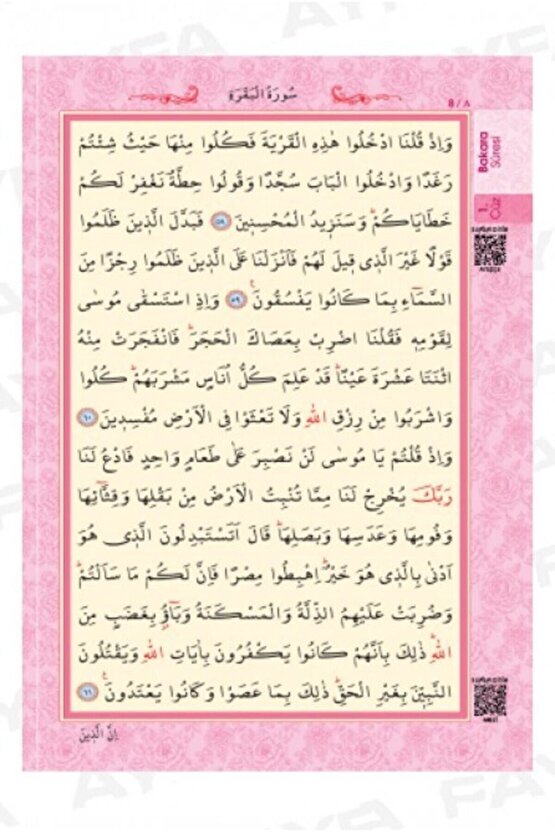 سُورَةُ الْبَقَرَةِ
8 / ٨
Bakara
Sûresi
1.
Cüz
وَاِذْ قُلْنَا ادْخُلُوا هٰذِهِ الْقَرْيَةَ فَكُلُوا مِنْهَا حَيْثُ شِئْتُمْ
رَغَدًا وَادْخُلُوا الْبَابَ سُجَّدًا وَقُولُوا حِطَّةٌ نَغْفِرْ لَكُمْ
خَطَايَاكُمْۜ وَسَنَزٖيدُ الْمُحْسِنٖينَ ٥٨ فَبَدَّلَ الَّذٖينَ ظَلَمُوا
قَوْلًا غَيْرَ الَّذٖي قٖيلَ لَهُمْ فَاَنْزَلْنَا عَلَى الَّذٖينَ ظَلَمُوا رِجْزًا مِنَ
السَّمَٓاءِ بِمَا كَانُوا يَفْسُقُونَ۟ ٥٩ وَاِذِ اسْتَسْقٰى مُوسٰى
لِقَوْمِهٖ فَقُلْنَا اضْرِبْ بِعَصَاكَ الْحَجَرَۜ فَانْفَجَرَتْ مِنْهُ
اثْنَتَا عَشْرَةَ عَيْنًاۜ قَدْ عَلِمَ كُلُّ اُنَاسٍ مَشْرَبَهُمْۜ كُلُوا
وَاشْرَبُوا مِنْ رِزْقِ اللّٰهِ وَلَا تَعْثَوْا فِي الْاَرْضِ مُفْسِدٖينَ ٦٠
وَاِذْ قُلْتُمْ يَا مُوسٰى لَنْ نَصْبِرَ عَلٰى طَعَامٍ وَاحِدٍ فَادْعُ لَنَا
رَبَّكَ يُخْرِجْ لَنَا مِمَّا تُنْبِتُ الْاَرْضُ مِنْ بَقْلِهَا وَقِثَّٓائِهَا
وَفُومِهَا وَعَدَسِهَا وَبَصَلِهَاۜ قَالَ اَتَسْتَبْدِلُونَ الَّذٖي هُوَ
اَدْنٰى بِالَّذٖي هُوَ خَيْرٌۜ اِهْبِطُوا مِصْرًا فَاِنَّ لَكُمْ مَا سَاَلْتُمْۜ
وَضُرِبَتْ عَلَيْهِمُ الذِّلَّةُ وَالْمَسْكَنَةُ وَبَٓاؤُ۫ بِغَضَبٍ مِنَ
اللّٰهِۜ ذٰلِكَ بِاَنَّهُمْ كَانُوا يَكْفُرُونَ بِاٰيَاتِ اللّٰهِ وَيَقْتُلُونَ
النَّبِيّٖنَ بِغَيْرِ الْحَقِّۜ ذٰلِكَ بِمَا عَصَوْا وَكَانُوا يَعْتَدُونَ۟ ٦١
اِنَّ الَّذٖينَ